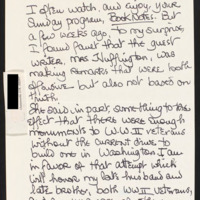 I often watch, and enjoy, your
Sunday program, Book Notes. But
a few weeks ago, to my surprise,
I found that the guest
writer, Mrs. Huffington, was
making remarks that were both
offensive but also not based on
truth.
She said, in part, something to the
effect that there were enough
monuments to W.W.II veterans
without the current drive to
build one in Washington. I am
in favor of that attempt which
will honor my late husband and
late brother, both WWII veterans,